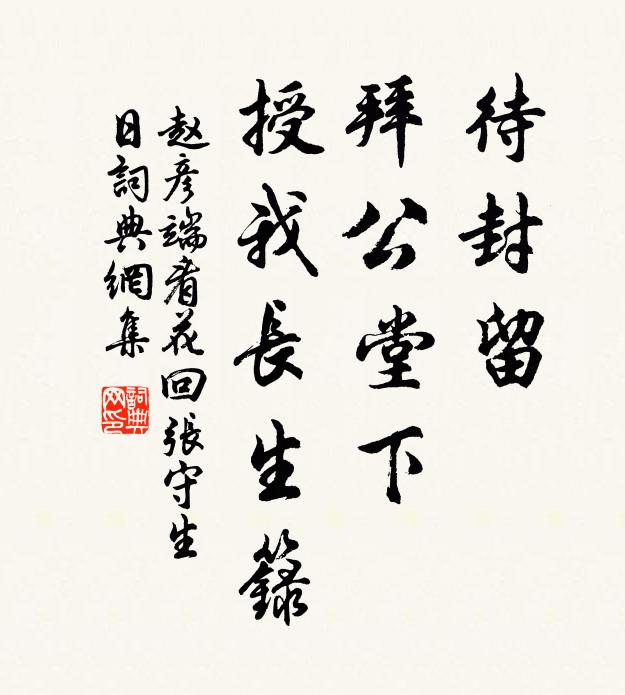 待封留
拜公堂下
授我長生籙
赵彦端看花回張守生
日詞典網集
詞典
网印